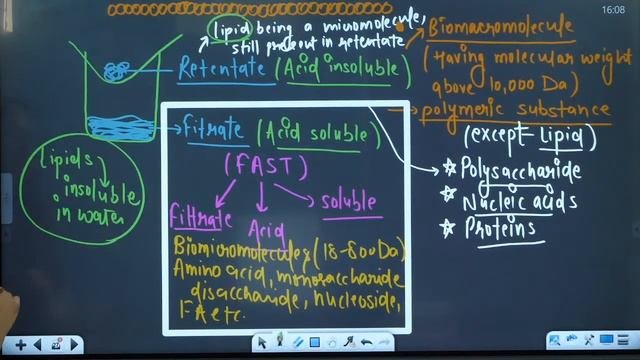 16:08
lipid being a micromolecule,
still present in retentate
Retentate (Acid insoluble)
Biomacromolecule
(Having molecular weight
above 10,000 Da)
polymeric substance
(except lipid)
☆ Polysaccharide
☆ Nucleic acids
☆ Proteins
Filtrate (Acid soluble)
(FAST)
Filtrate Acid soluble
Biomicromolecules (18-800 Da)
Amino acid, monosaccharide
disaccharide, nucleoside,
FA etc.
lipids
insoluble
in water